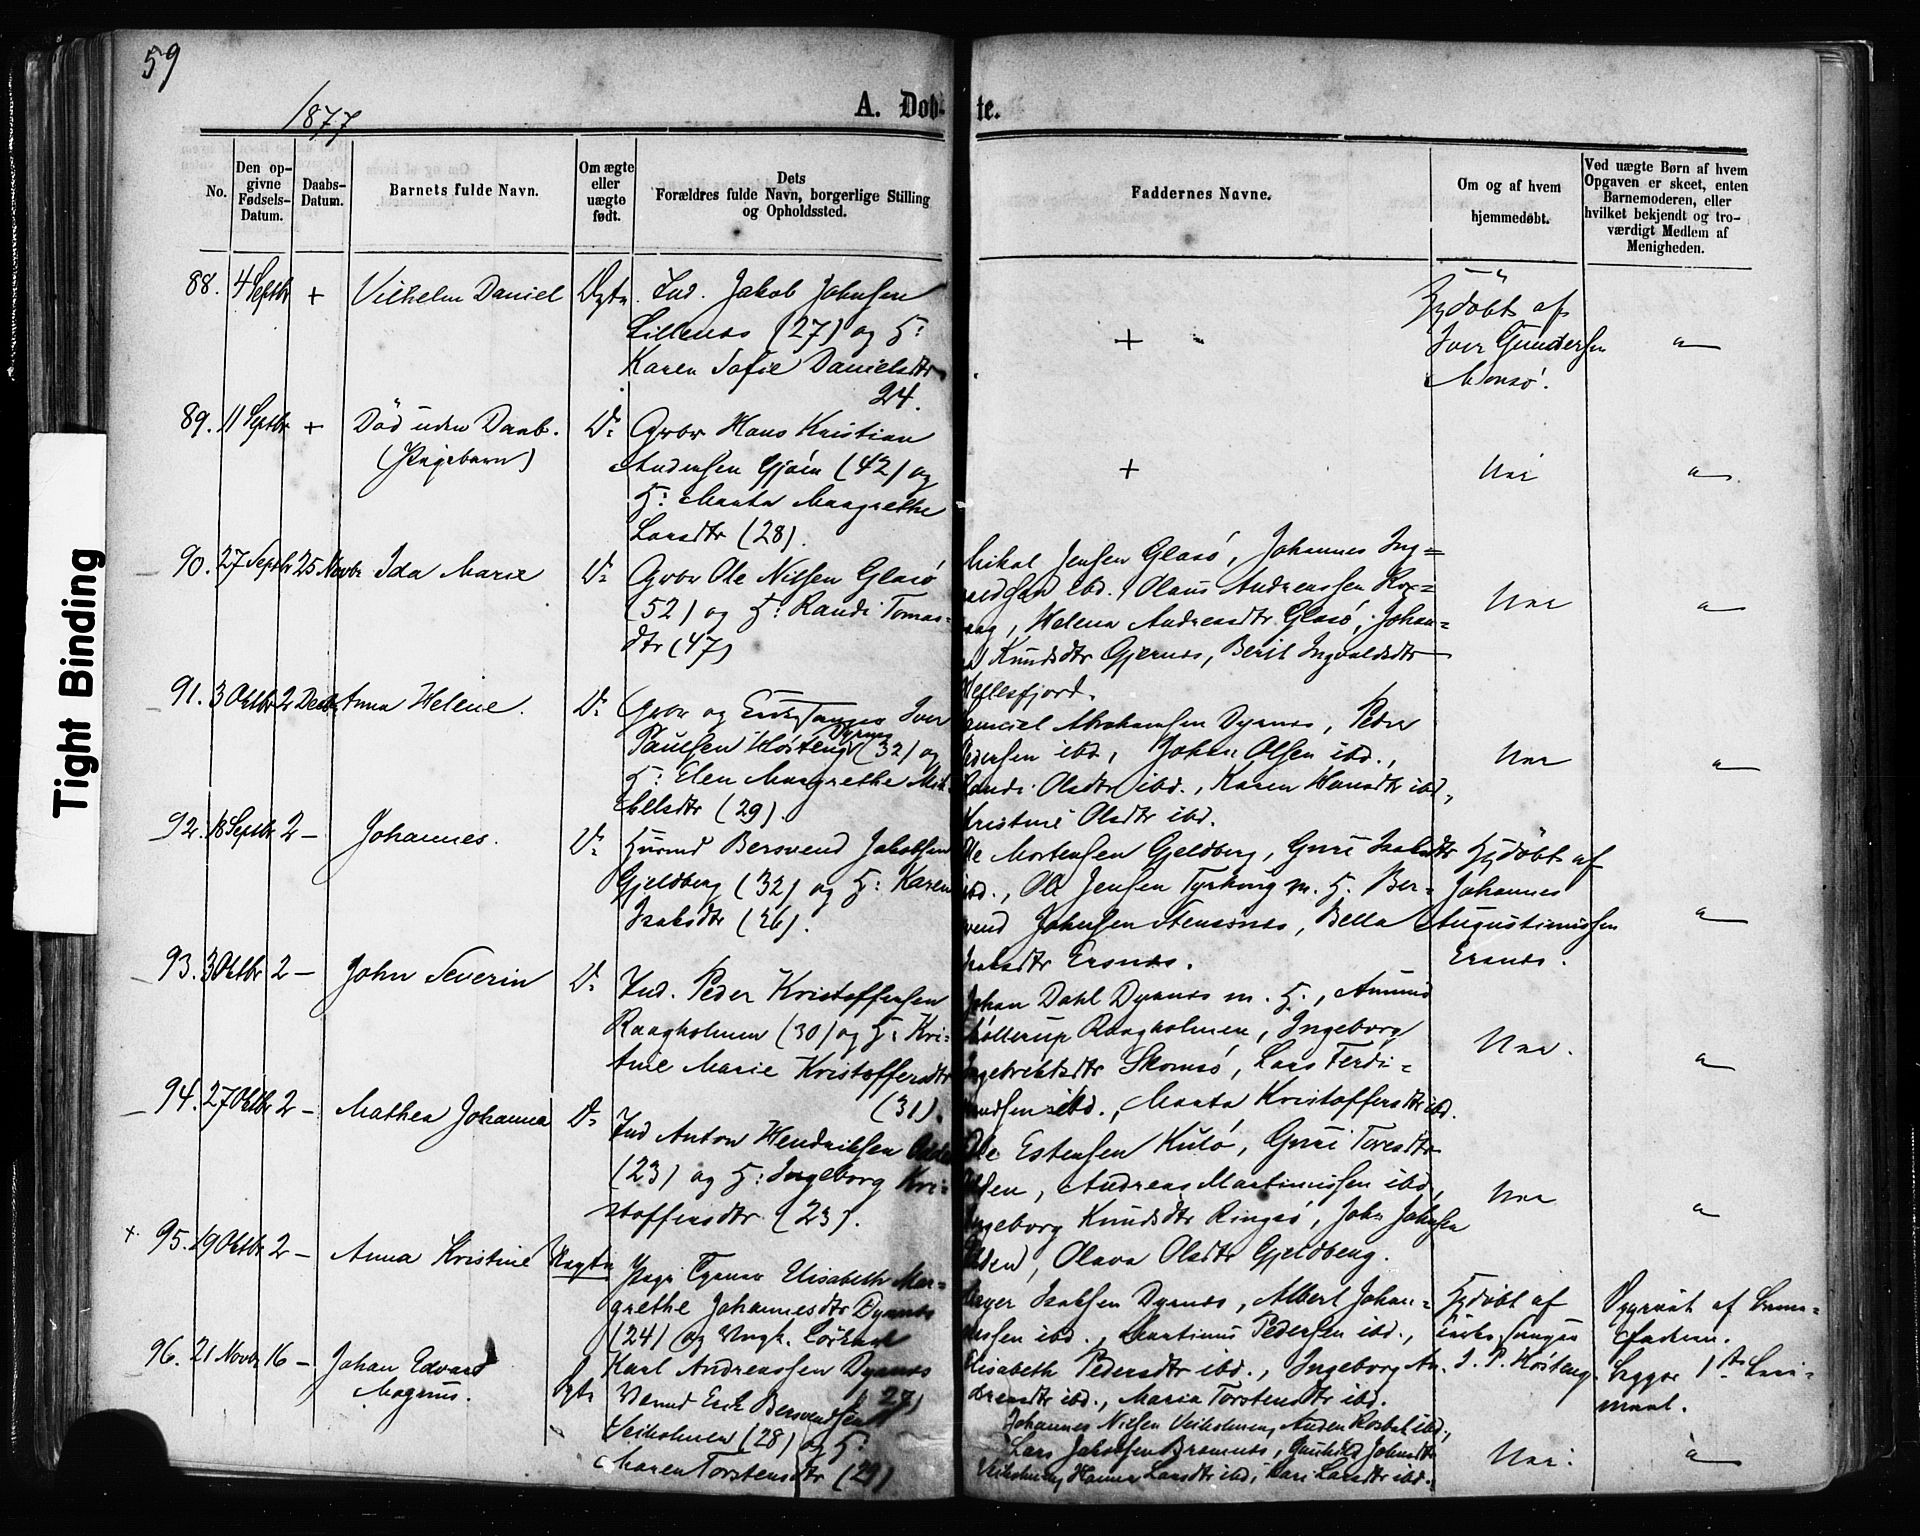 59
1877
A. Døb-te.
No.
Den op-
givne
Fødsels-
Datum.
Daabs-
Datum.
Barnets fulde Navn.
Om ægte
eller
uægte
født.
Dets
Forældres fulde Navn, borgerlige Stilling
og Opholdssted.
Faddernes Navne.
Om og af hvem
hjemmedøbt.
Ved uægte Børn af hvem
Opgaven er skeet, enten
Barnemoderen, eller
hvilket bekjendt og tro-
værdigt Medlem af
Menigheden.
88. 4 Septbr + Vilhelm Daniel Ægte. Ind. Jakob Johnsen
Lillenes (27) og H:
Karen Sofie Danielsdtr
24.
+
Hjdöbt af
Iver Gundersen
89. 11 Septbr + Död uden Daab.
(Pigebarn)
Do Gbr Hans Kristian
Andersen (42) og
H: Marta Margrethe
Larsdtr (28).
+
Nei
90. 27 Septbr 25 Novbr Ida Marie Do Gbr Ole Nilsen Glasø
(52) og H: Randi Tomas-
dtr (47)
Mikal Jensen Glasø, Johannes Ing-
ibd., Olaus Andreassen
Helena Andreasdtr Glasø, Johan-
Knudsdtr Gjernes, Berit Ingvaldsdtr
Nei
91. 3 Oktbr 2 Decbr Anna Helene. Do Gbr og Iver
Paulsen Høsteng Dyrnes (32) og
H: Elen Margrethe Mik-
kelsdtr (29).
Abrahamsen Dyrnes, Peder
Pedersen ibd., Johan Olsen ibd.,
Randi Olsdtr ibd., Karen Hansdtr ibd.,
Kristine Olsdtr ibd.
Nei
92. 18 Septbr 2 — Johannes. Do Husmd Bersvend Jakobsen
Gjeldberg (32) og H: Karen
Isaksdtr (26).
Ole Mortensen Gjeldberg, Guri Isaksdtr
ibd., Ole Jensen Tyrhaug m. H. Ber-
svend Johnsen Stensønes, Bella
Isaksdtr Ersnes.
Hjdöbt af
Johannes
Augustinussen
Ersnes.
93. 3 Oktbr 2 — John Severin Do Ind. Peder Kristoffersen
Raagholmen (30) og H: Kri-
stine Marie Kristoffersdtr
(31).
Johan Dahl Dyrnes m. H., Amund
Møllerup Raagholmen, Ingeborg
Ingebrektsdtr Skomsø, Lars Ferdi-
nandsen ibd., Marta Kristoffersdtr ibd.
Nei.
94. 27 Oktbr 2 — Mathea Johanna Do Ind Anton Hendriksen Odden
(23) og H: Ingeborg Kri-
stoffersdtr (23).
Ole Estensen Kulø, Guri Toresdtr
Odden, Andreas Martinussen ibd.,
Ingeborg Knudsdtr Ringsø, John Johnsen
Odden, Olava Olsdtr Gjeldberg.
Nei
+. 95. 19 Oktbr 2 — Anna Kristine Uægte Pige Elisabeth Mar-
grethe Johannesdtr Dyrnes
(24) og Ungk.
Karl Andreassen Dyrnes
(27)
Isaksen Dyrnes, Albert Johan-
nessen ibd., Martinus Pedersen ibd.,
Elisabeth Pedersdtr ibd., Ingeborg An-
dreasdtr ibd., Maria Torstensdtr ibd.
Hjdöbt af
Kirkesanger
I. P. Høsteng
Opgivet af Barne-
faderen.
Begges 1ste Leier-
maal.
96. 21 Novbr 16 — Johan Edvard
Magnus.
Ægte Erik Bersvendsen
Veiholmen (28) og H:
Maren Torstensdtr (29)
Johannes Nilsen Veiholmen, ibd.,
Lars Jakobsen Bremnes, Gunhild Johnsdtr
Veiholmen, Hanna Larsdtr ibd., Kari Larsdtr ibd.
Nei.
Tight Binding